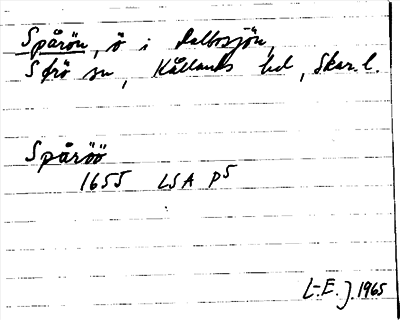 Spårön, ö i Dalbosjön,
S frö sn, Kållands hd, Skar. l.
Spåröö
1655 LSA P5
L-E. J. 1965